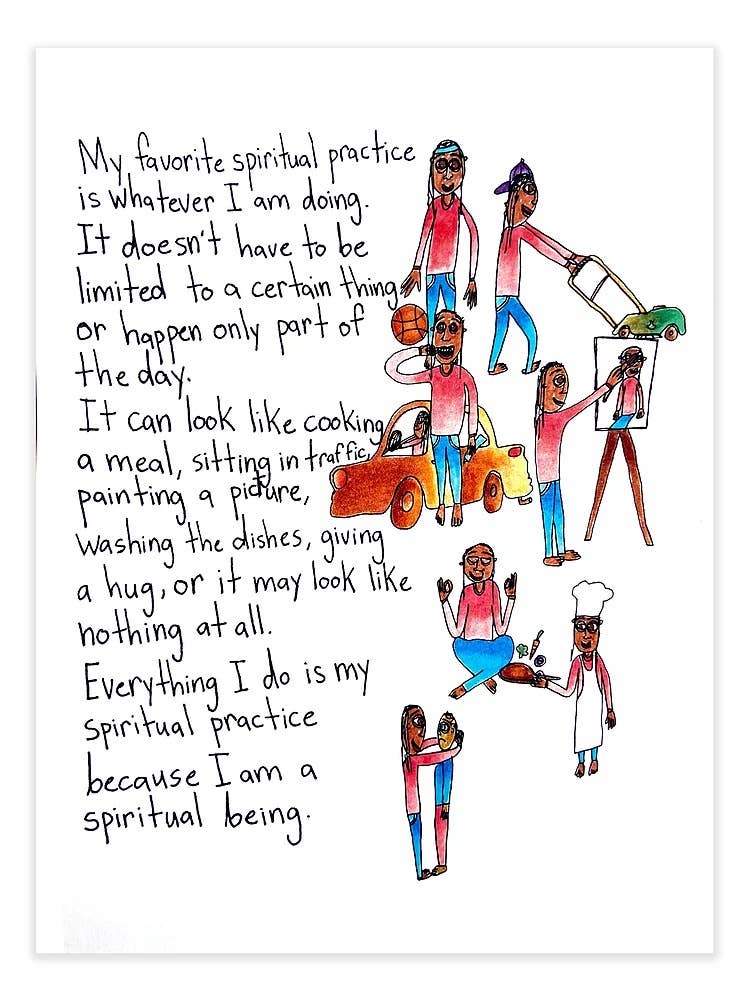 My favorite spiritual practice
is whatever I am doing.
It doesn't have to be
limited to a certain thing
or happen only part of
the day.
It can look like cooking
a meal, sitting in traffic,
painting a picture,
washing the dishes, giving
a hug, or it may look like
nothing at all.
Everything I do is my
spiritual practice
because I am a
spiritual being.